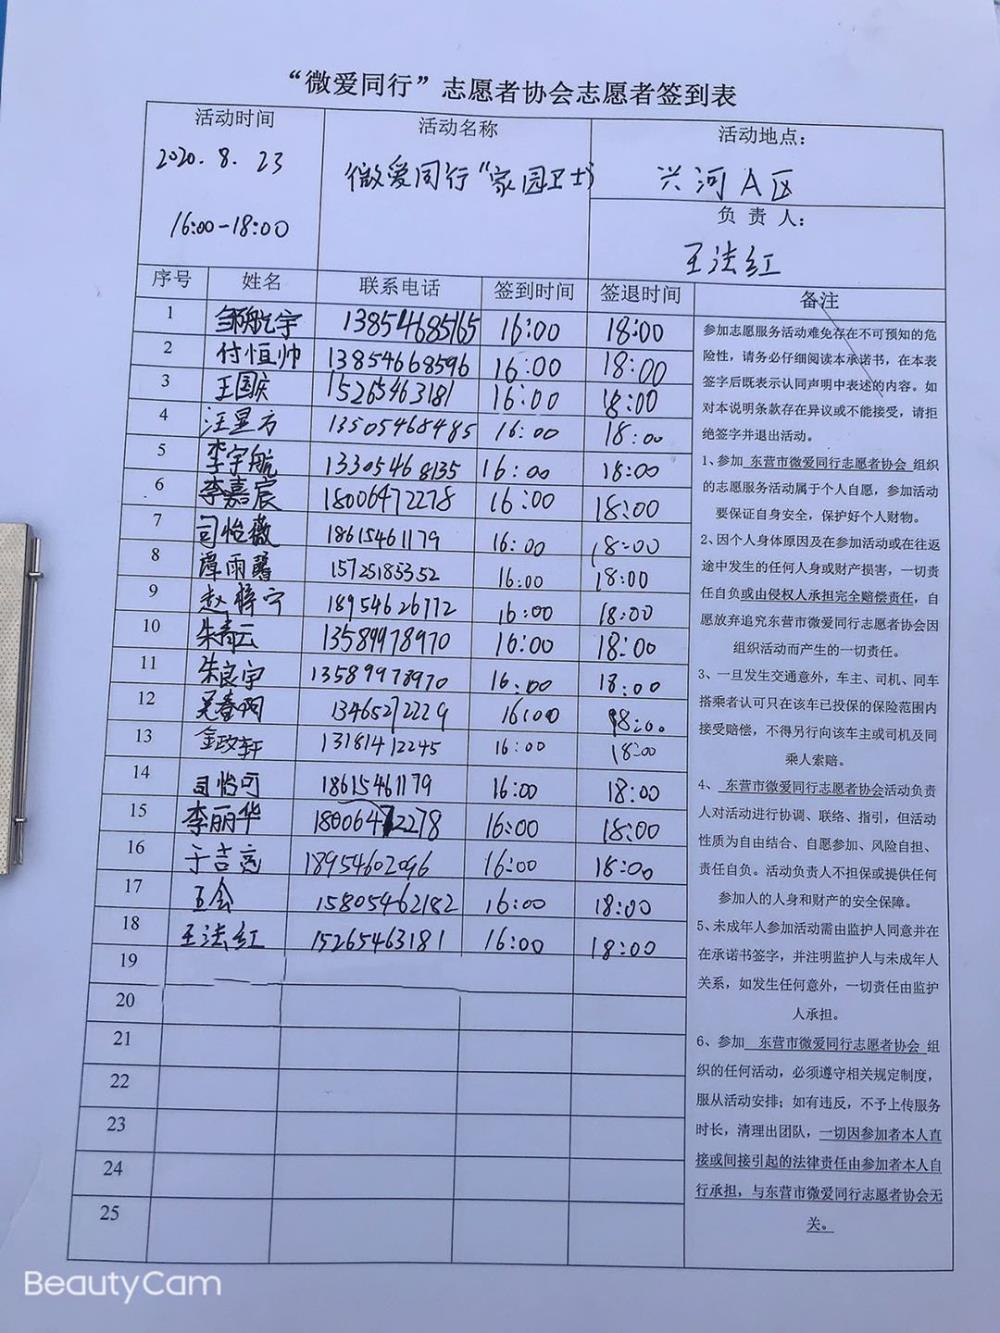 “微爱同行”志愿者协会志愿者签到表
活动时间
2020.8.23
16:00-18:00
活动名称
微爱同行“家园卫士”
活动地点：
兴河A区
负责人：
王法红
序号 姓名 联系电话 签到时间 签退时间 备注
1 邹航宇 13854685165 16:00 18:00
2 付恒帅 13854668596 16:00 18:00
3 王国庆 15265463181 16:00 18:00
4 汪显方 13505468485 16:00 18:00
5 李宇航 13305468135 16:00 18:00
6 李嘉宸 18006472278 16:00 18:00
7 司怡薇 18615461179 16:00 18:00
8 谭雨馨 15725185352 16:00 18:00
9 赵梓宁 18954626772 16:00 18:00
10 朱青云 13589978970 16:00 18:00
11 朱良宇 13589978970 16:00 18:00
12 吴春 13465272229 16:00 18:00
13 金政轩 13181412245 16:00 18:00
14 司怡可 18615461179 16:00 18:00
15 李丽华 18006472278 16:00 18:00
16 于吉亮 18954602096 16:00 18:00
17 15805462182 16:00 18:00
18 王法红 15265463181 16:00 18:00
19
20
21
22
23
24
25
参加志愿服务活动难免存在不可预知的危
险性，请务必仔细阅读本承诺书，在本表
签字后既表示认同声明中表述的内容。如
对本说明条款存在异议或不能接受，请拒
绝签字并退出活动。
1、参加 东营市微爱同行志愿者协会 组织
的志愿服务活动属于个人自愿，参加活动
要保证自身安全，保护好个人财物。
2、因个人身体原因及在参加活动或在往返
途中发生的任何人身或财产损害，一切责
任自负或由侵权人承担完全赔偿责任，自
愿放弃追究东营市微爱同行志愿者协会因
组织活动而产生的一切责任。
3、一旦发生交通意外，车主、司机、同车
搭乘者认可只在该车已投保的保险范围内
接受赔偿，不得另行向该车主或司机及同
乘人索赔。
4、 东营市微爱同行志愿者协会活动负责
人对活动进行协调、联络、指引，但活动
性质为自由结合、自愿参加、风险自担、
责任自负。活动负责人不担保或提供任何
参加人的人身和财产的安全保障。
5、未成年人参加活动需由监护人同意并在
在承诺书签字，并注明监护人与未成年人
关系，如发生任何意外，一切责任由监护
人承担。
6、参加 东营市微爱同行志愿者协会 组
织的任何活动，必须遵守相关规定制度，
服从活动安排；如有违反，不予上传服务
时长，清理出团队，一切因参加者本人直
接或间接引起的法律责任由参加者本人自
行承担，与东营市微爱同行志愿者协会无
关。
BeautyCam